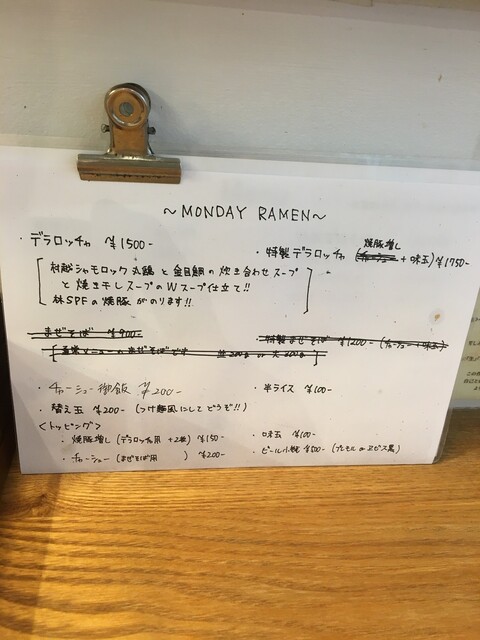 ~MONDAY RAMEN~
・デラロッチャ ¥1500-
焼豚増し
・特製デラロッチャ (チャーシュー + 味玉) ¥1750-
村越シャモロック丸鶏と金目鯛の炊き合わせスープ
と焼き干しスープのWスープ仕立て!!
林SPFの焼豚がのります!!
まぜそば ¥900-
特製まぜそば ¥1200- (チャーシュー + 味玉)
並200g or 大300g
・チャーシュー御飯 ¥200-
・半ライス ¥100-
・替え玉 ¥200- (つけ麺風にしてどうぞ!!)
<トッピング>
・焼豚増し (デラロッチャ用 +2枚) ¥150-
・味玉 ¥100-
・チャーシュー (まぜそば用 ) ¥200-
・ビール小瓶 ¥500- (プレモル or ヱビス黒)